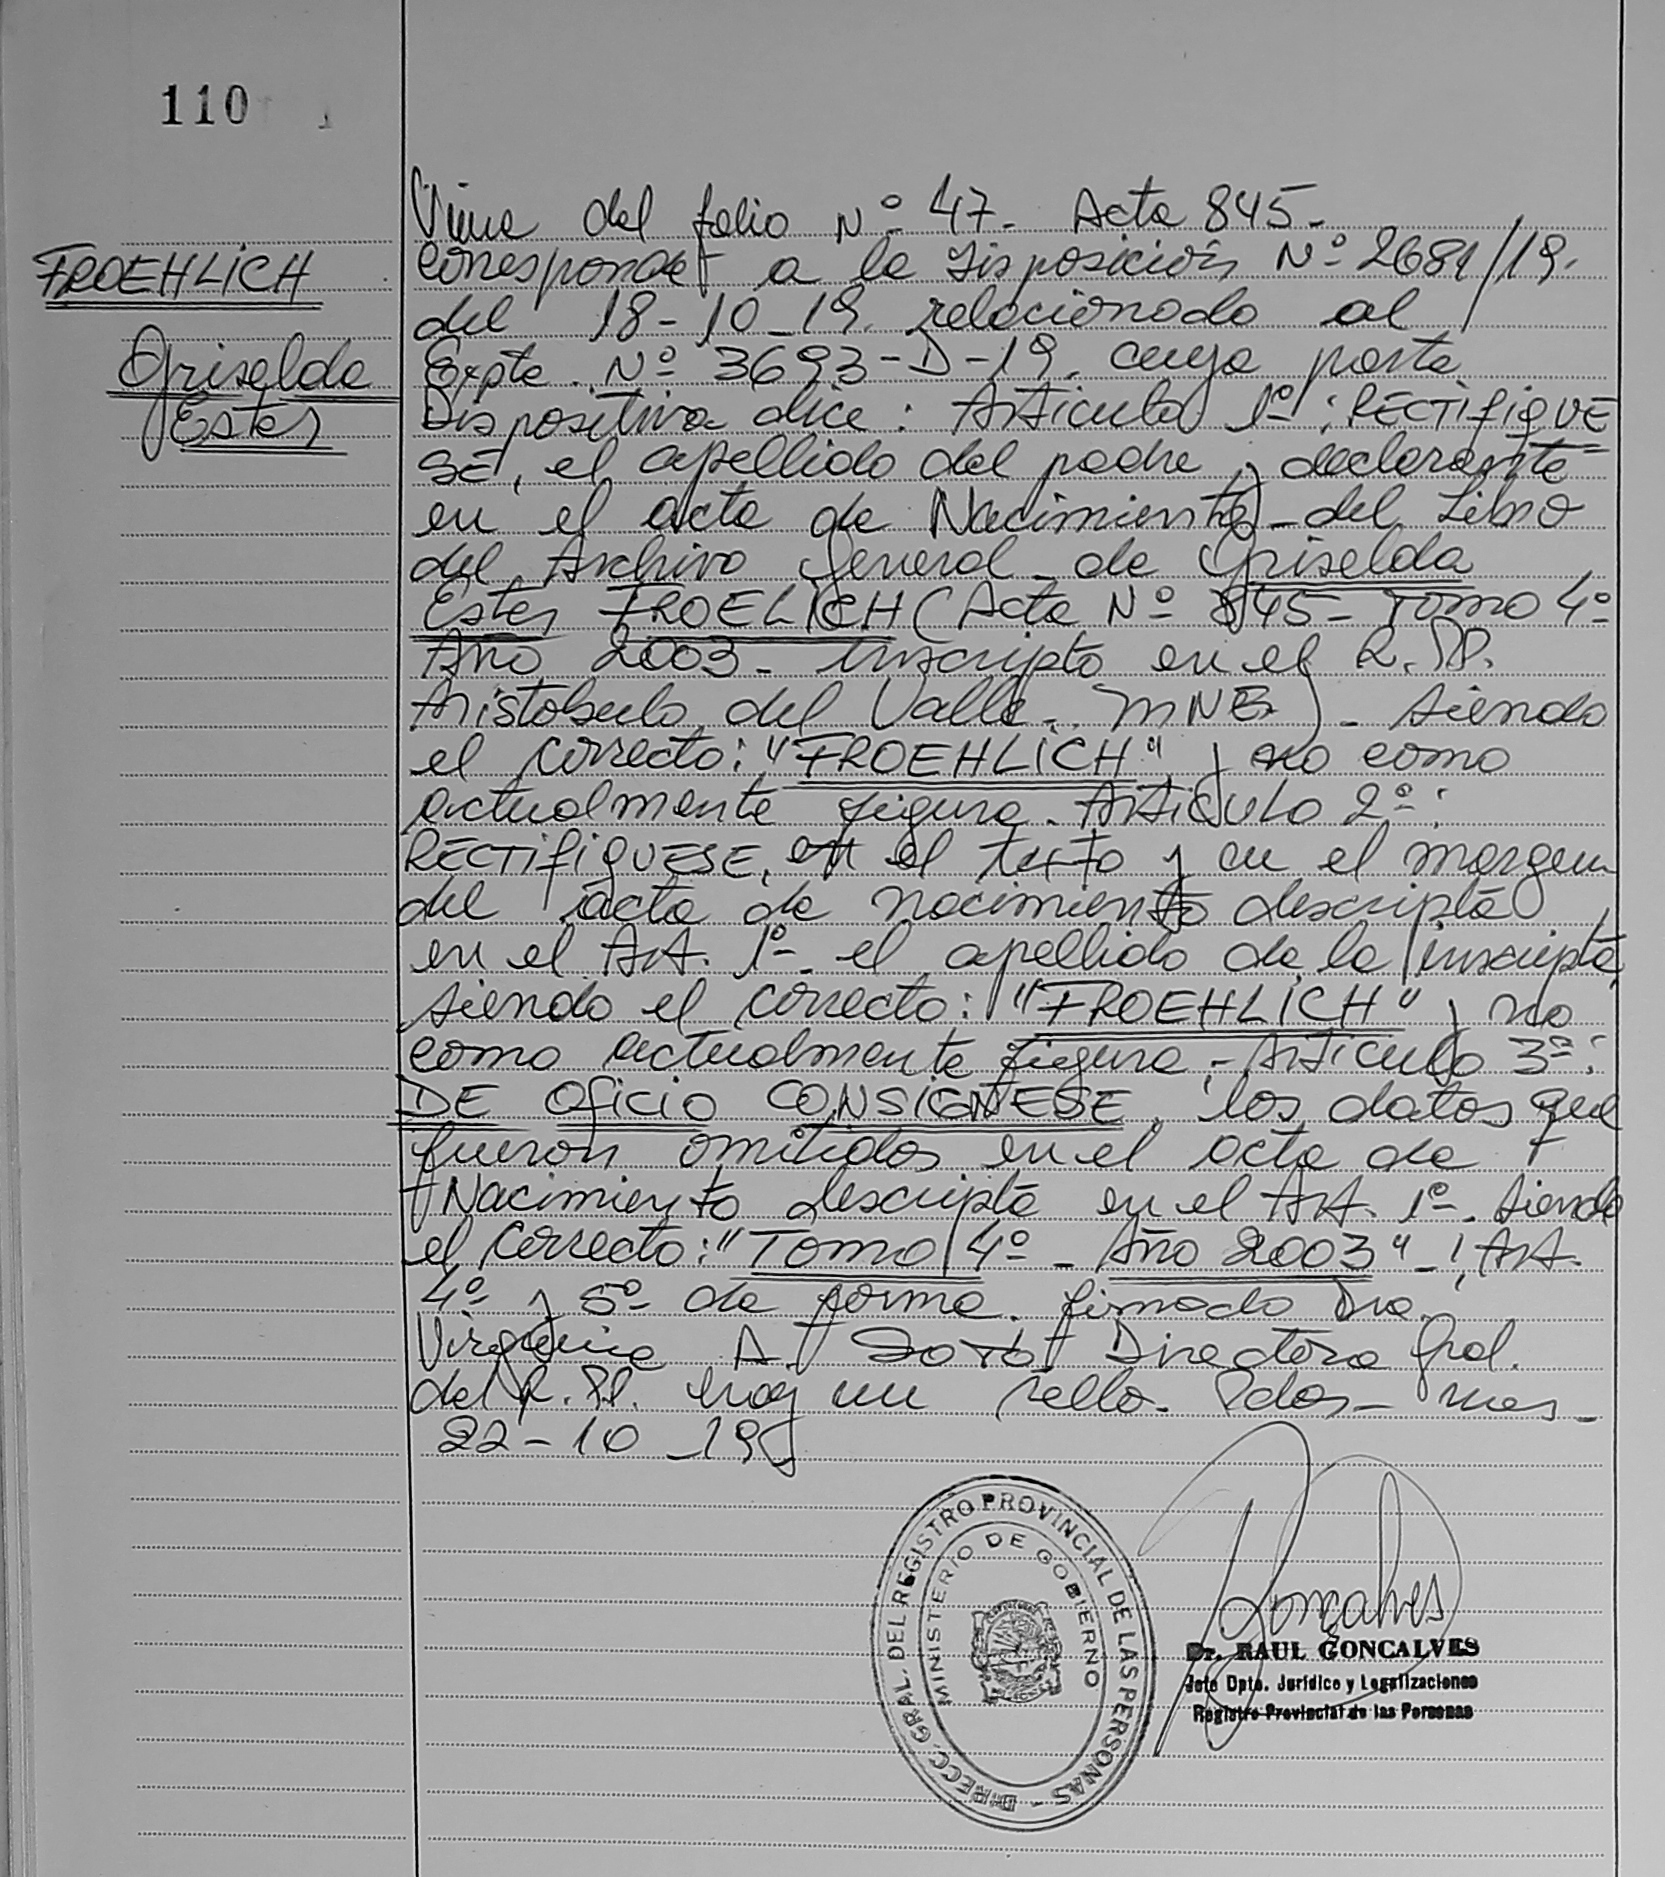 110
FROEHLICH
Griselda
Ester
Viene del folio Nº 47. Acta 845.
corresponde a la Disposición Nº 2681/19.
del 18-10-19. relacionado al
Expte. Nº 3693-D-19. cuya parte
Dispositiva dice: Artículo 1º: RECTIFIQUE
SE, el apellido del padre y declarante
en el acta de Nacimiento del Libro
del Archivo General de Griselda
Ester FROELICH (Acta Nº 845- Tomo 4º
Año 2003- inscripto en el R.PP.
Aristobulo del Valle. MNES). siendo
el correcto: "FROEHLICH" y no como
actualmente figura. ARTICULO 2º:
RECTIFIQUESE, en el texto y en el margen
del acta de nacimiento descripta
en el Art. 1º. el apellido de la inscripta,
siendo el correcto: "FROEHLICH" y no
como actualmente figura.- ARTICULO 3º:
DE OFICIO CONSIGNESE los datos que
fueron omitidos en el acta de
Nacimiento descripta en el Art. 1º. siendo
el correcto: "Tomo 4º - Año 2003"-; Art.
4º y 5º de forma. firmado Dra.
Virginia A. Directora Gral.
del R.PP. hay un sello. Pdas- Mnes-
22-10-19
DIRECC. GRAL. DEL REGISTRO PROVINCIAL DE LAS PERSONAS -
MINISTERIO DE GOBIERNO
Goncalves
Dr. RAUL GONCALVES
Jefe Dpto. Jurídico y Legalizaciones
Registro Provincial de las Personas